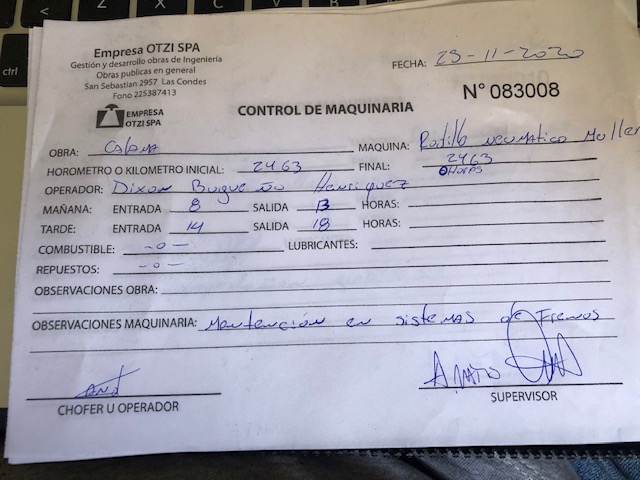 Empresa OTZI SPA
Gestión y desarrollo obras de Ingeniería
Obras publicas en general
San Sebastián 2957 Las Condes
Fono 225387413
EMPRESA
OTZI SPA
FECHA: 23-11-2020
CONTROL DE MAQUINARIA
N° 083008
OBRA: MAQUINA: Rodillo neumatico Muller
HOROMETRO O KILOMETRO INICIAL: 2463 FINAL: 2463
OPERADOR: Dixon Henriquez
MAÑANA: ENTRADA 8 SALIDA 13 HORAS:
TARDE: ENTRADA 14 SALIDA 18 HORAS:
COMBUSTIBLE: -0- LUBRICANTES:
REPUESTOS: -0-
OBSERVACIONES OBRA:
OBSERVACIONES MAQUINARIA: Mantención en sistemas de Frenos
CHOFER U OPERADOR
SUPERVISOR
ctrl
Z
X
C
<